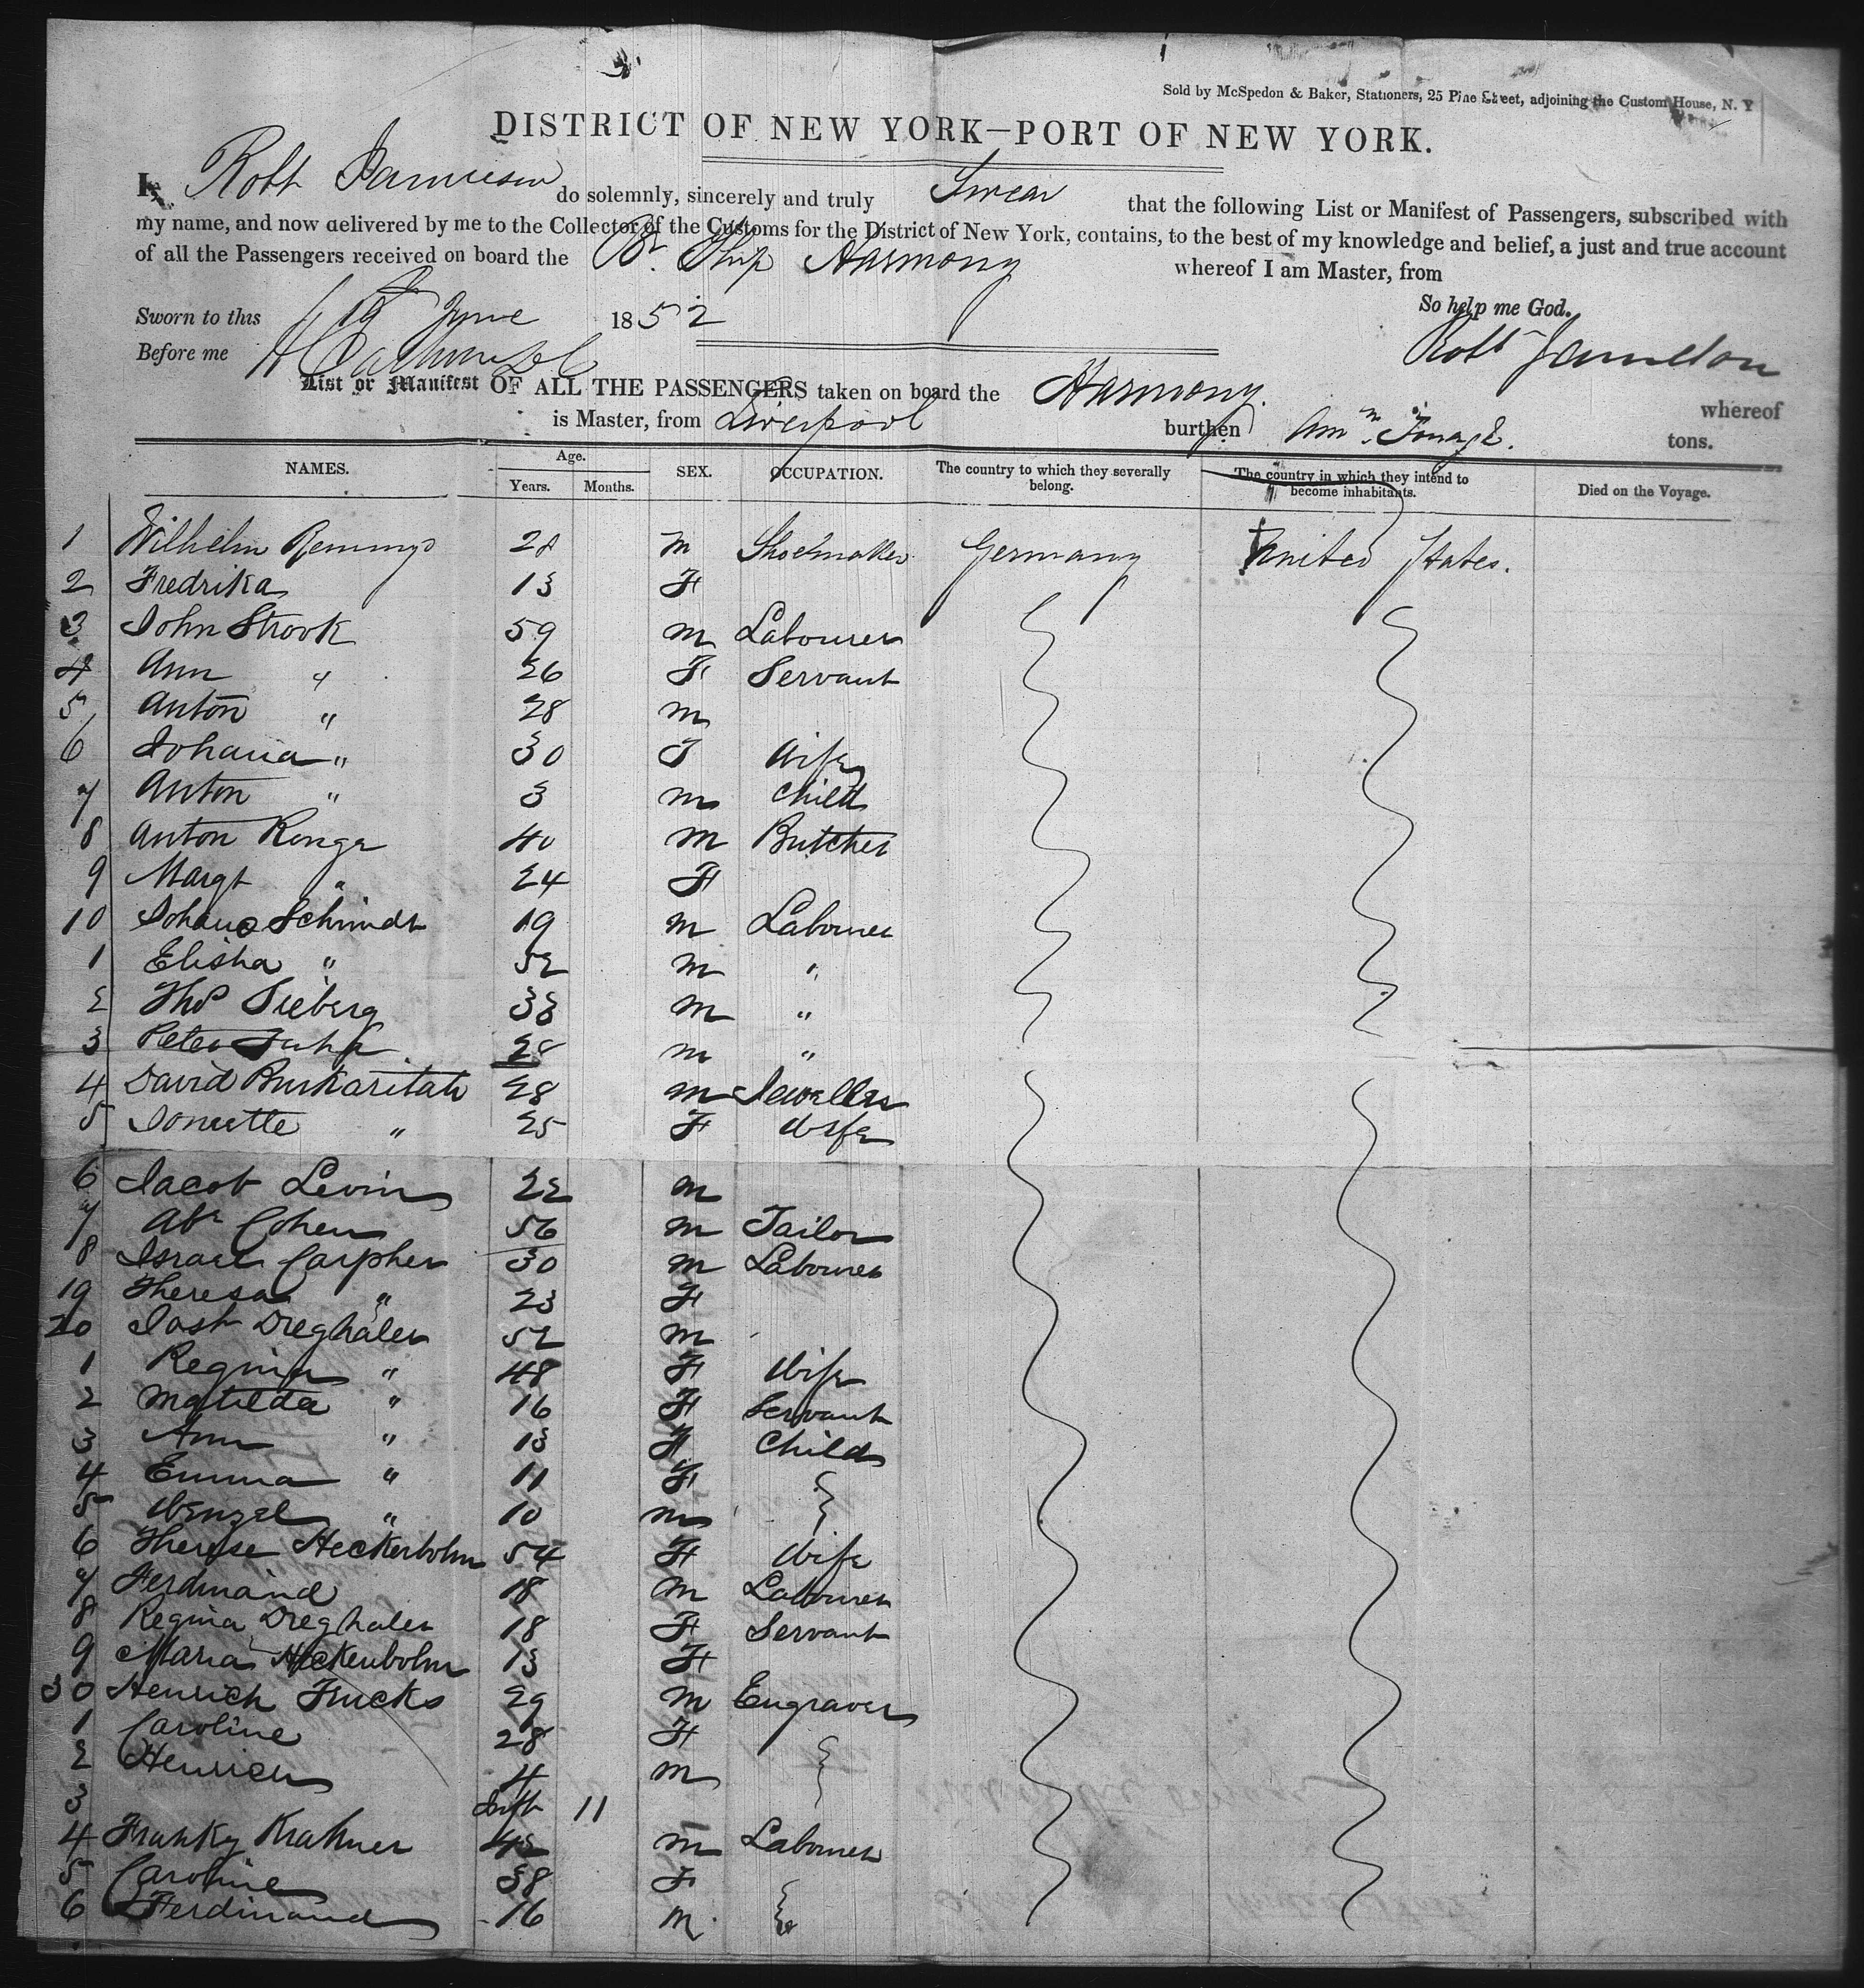 Sold by McSpedon & Baker, Stationers, 25 Pine Street, adjoining the Custom House, N. Y
DISTRICT OF NEW YORK—PORT OF NEW YORK.
I, Robt Jamieson do solemnly, sincerely and truly Swear that the following List or Manifest of Passengers, subscribed with
my name, and now delivered by me to the Collector of the Customs for the District of New York, contains, to the best of my knowledge and belief, a just and true account
of all the Passengers received on board the Br. Ship Harmony whereof I am Master, from
So help me God.
Sworn to this 19 June 1852
Robt
Before me
List or Manifest OF ALL THE PASSENGERS taken on board the Harmony. whereof
is Master, from Liverpool burthen tons.
NAMES. Age. Years. Months. SEX. OCCUPATION. The country to which they severally belong. The country in which they intend to become inhabitants. Died on the Voyage.
1 Wilhelm 28 M Shoemaker Germany United States.
2 Fredrika 13 F
3 John Strook 59 M Labourer
4 Ann " 26 F Servant
5 Anton " 28 M
6 Johana " 30 F Wife
7 Anton " 3 M Child
8 Anton Konga 40 M Butcher
9 Margt " 24 F
10 Johans Schmidt 19 M Labourer
1 Elisha " 52 M "
2 Thos Sieberg 38 M "
3 Peter 28 M "
4 David 28 M Jeweller
5 " 25 F Wife
6 Jacob Levin 22 M
7 Abr Cohen 56 M Tailor
8 Israel Carpher 30 M Labourer
19 Theresa " 23 F
20 Jost Dreghaler 52 M
1 Regina " 48 F Wife
2 Matilda " 16 F Servant
3 Ann " 13 F Child
4 Emma " 11 F
5 Wenzel " 10 M
6 Therese Heckerbohm 54 F Wife
7 Ferdinand 18 M Labourer
8 Regina Dreghaler 18 F Servant
9 Maria Heckenbohm 13 F
30 Henrich Frucks 29 M Engraver
1 Caroline 28 F
2 Henrich 4 M
3 Inft 11
4 Franky Krahner 42 M Labourer
5 Caroline 38 F
6 Ferdinand 16 M